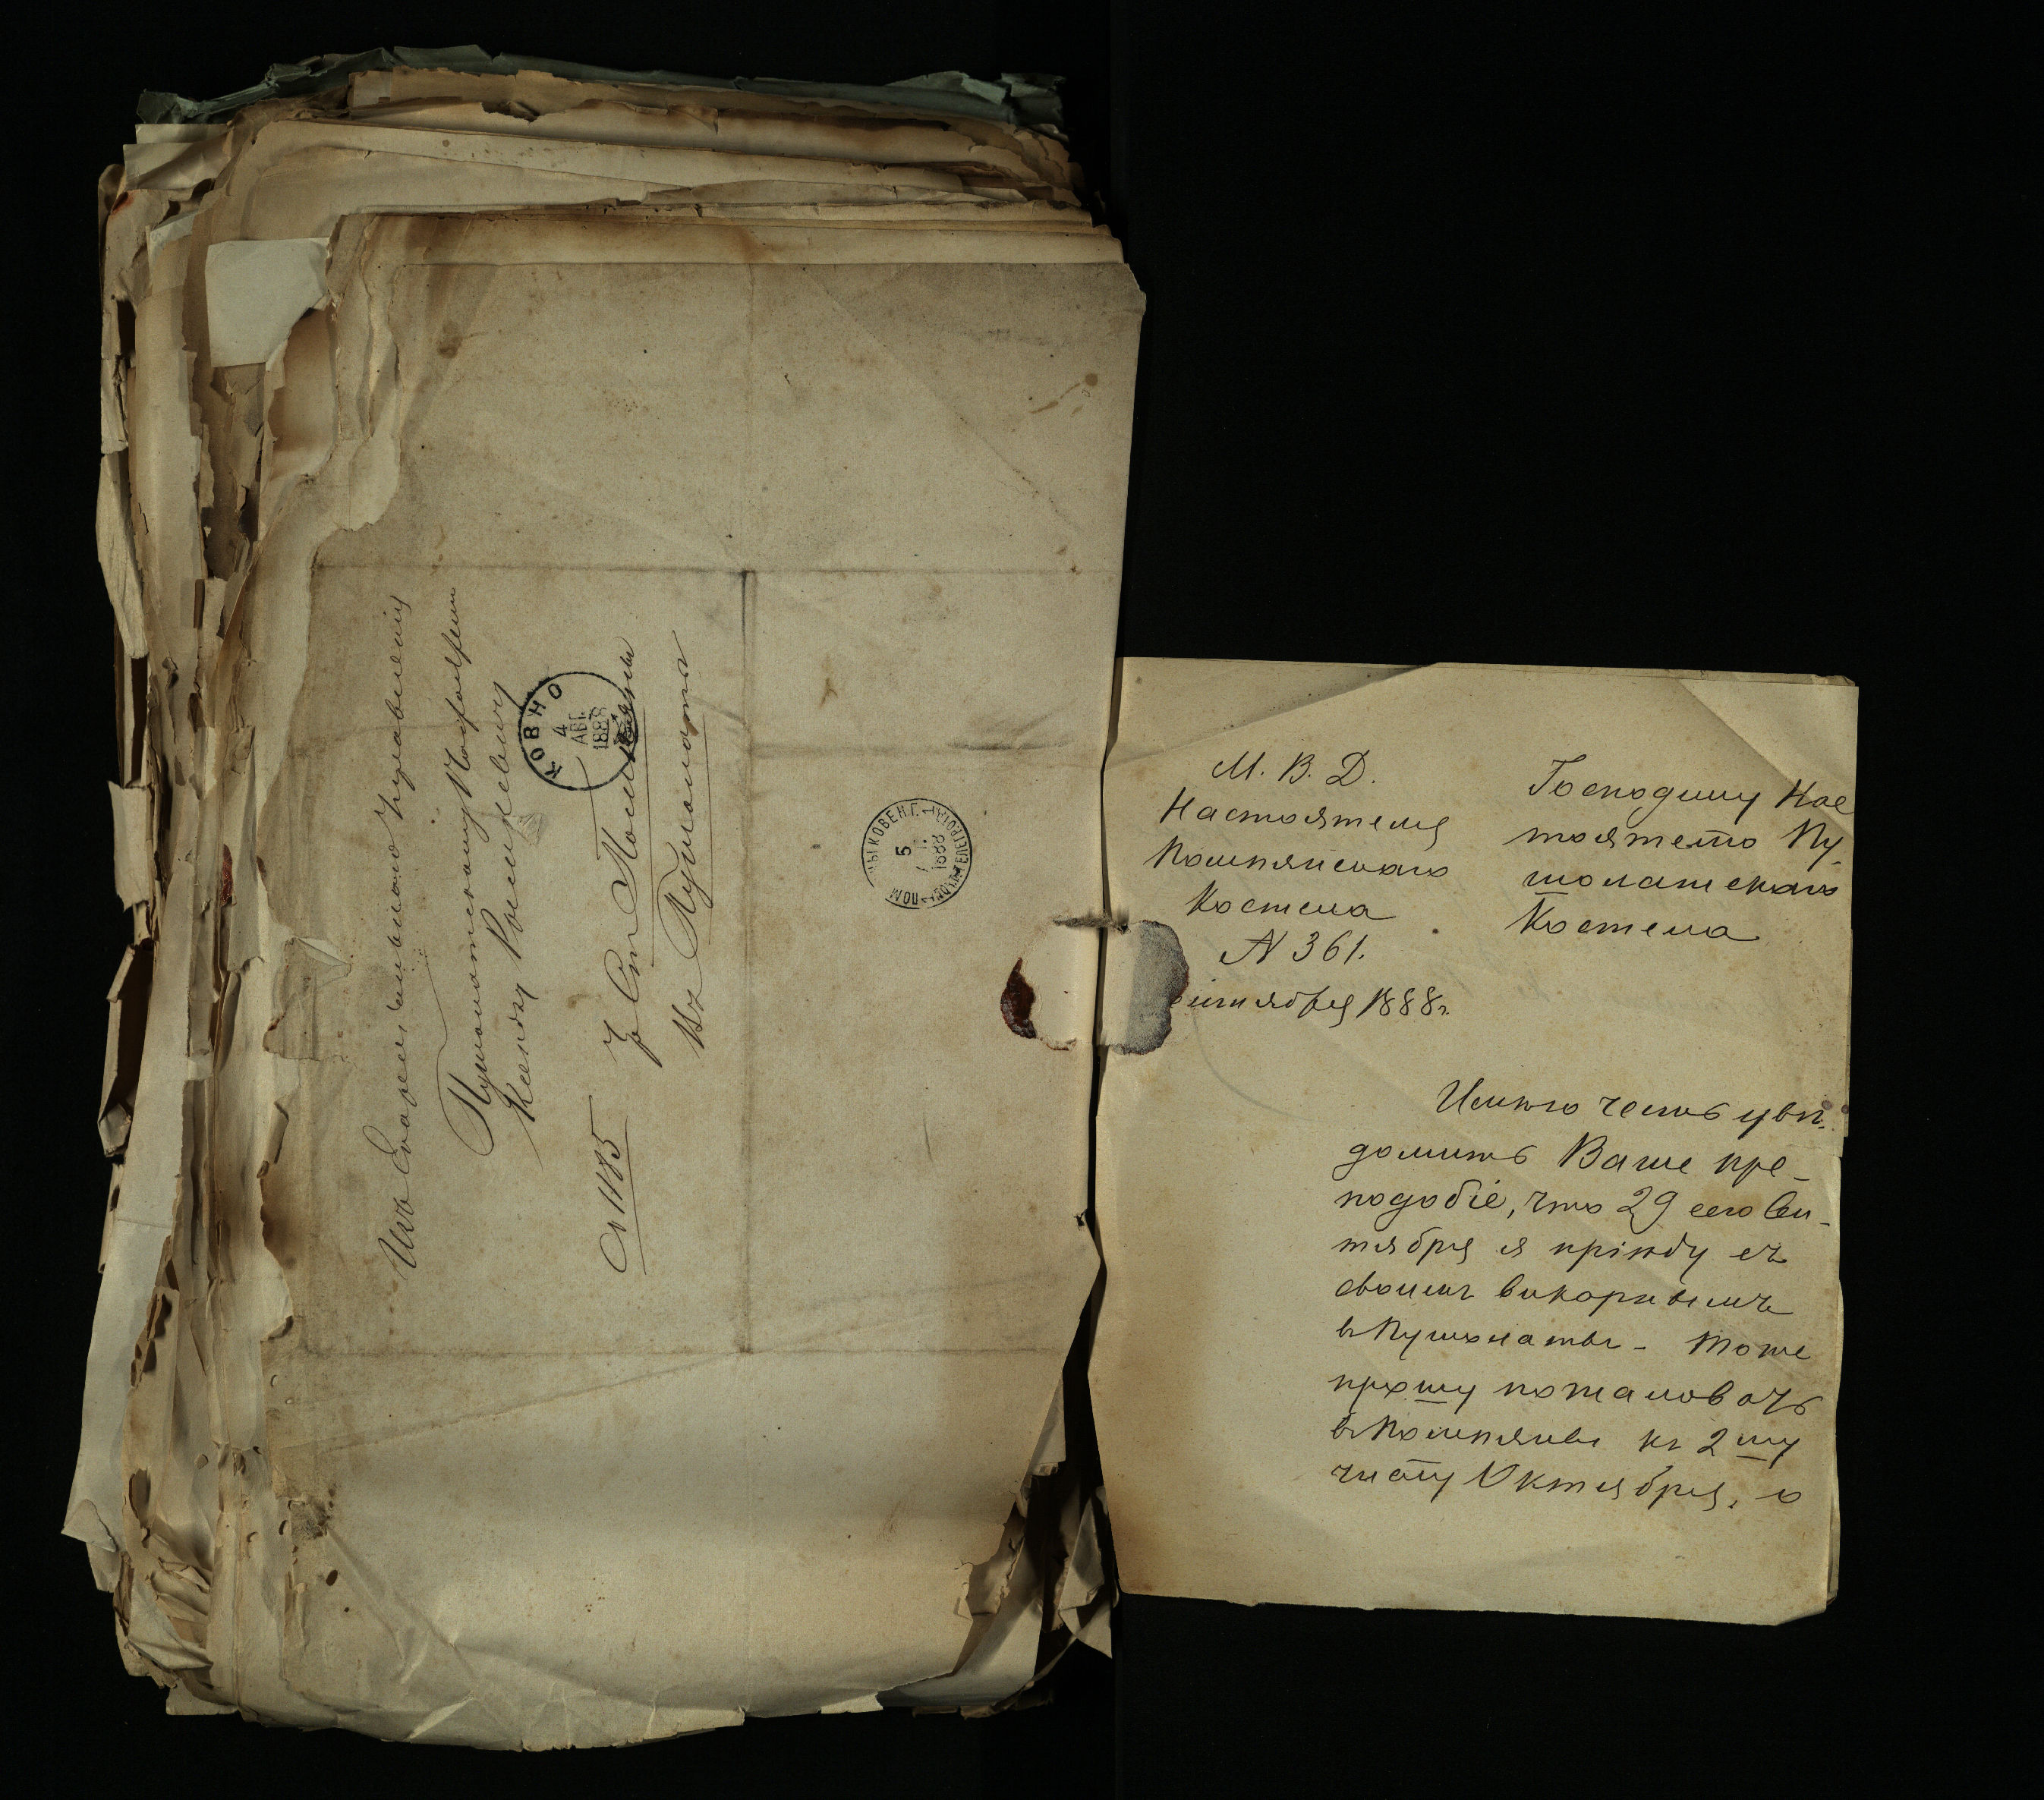 Изъ Епархіальнаго Управленія
Пушолотскому Настоятелю
Ксендзу
КОВНО
4
АВГ.
1888
№ 1185
Ст.
Въ Пушолаты
КОВЕН.Г.
5
1888
М. В. Д.
Настоятеля
Помпянскаго
Костела
N 361.
1888г.
Господину Нас
тоятелю Пу-
шолатскаго
Костела
Имѣю честь увѣ-
домить Ваше пре-
подобіе, что 29 сего Сен-
тября я пріѣду съ
своимъ викарнымъ
в Пушолаты - Тоже
прошу пожаловать
в Помпяны къ 2му
числу Октября, о